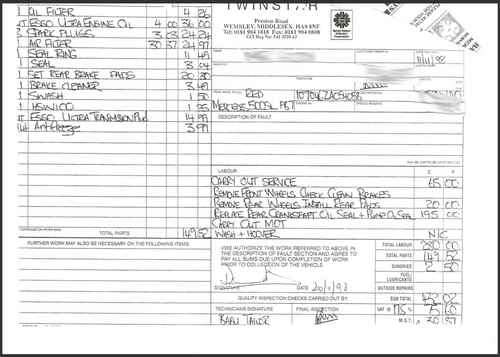 TWINSTAR
Preston Road
WEMBLEY, MIDDLESEX, HA9 8NF
Tel: 0181 904 1818 Fax: 0181 904 0808
VAT Reg No: 541 3028 63
1 OIL FILTER 4 24
ESSO ULTRA ENGINE OIL 4 00 36 00
SPARK PLUGS 3 03 24 24
1 AIR FILTER 30 37 24 97
1 SEAL RING 11 49
1 SEAL 3 04
1 SET REAR BRAKE PADS 20 30
1 BRAKE CLEANER 3 49
1 SWASH 1 50
1 HSW100 1 25
ESSO ULTRA TRANSMISION 14 99
Antifreeze 3 99
11/11/98
RED
MERCEDES 500SL
DESCRIPTION OF FAULT
LABOUR £ P
CARRY OUT SERVICE 65 00
REMOVE FRONT WHEELS CHECK CLEAN BRAKES
REMOVE REAR WHEELS INSTALL REAR PADS 20 00
REPLACE REAR CRANKSHAFT OIL SEAL + PUMP OIL SEAL 195 00
CARRY OUT MOT
WASH + HOOVER N/C
TOTAL PARTS 149 52
FURTHER WORK MAY ALSO BE NECESSARY ON THE FOLLOWING ITEMS
I/WE AUTHORIZE THE WORK REFERRED TO ABOVE IN
THE DESCRIPTION OF FAULT SECTION AND AGREE TO
PAY ALL SUMS DUE UPON COMPLETION OF WORK
PRIOR TO COLLECTION OF THE VEHICLE.
SIGNATURE DATE 20/11/98
TOTAL LABOUR 280 00
TOTAL PARTS 149 52
SUNDRIES 2 50
FUEL/
LUBRICANTS
OUTSIDE REPAIRS
SUB TOTAL 432 02
VAT @ 17.5 % 75 60
M.O.T. 30 87
QUALITY INSPECTION CHECKS CARRIED OUT BY
TECHNICIANS SIGNATURE FINAL INSPECTION
BABU TAILOR